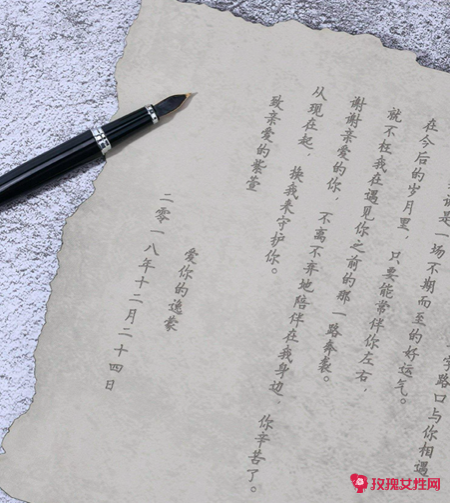 字路口与你相遇
是一场不期而至的好运气。
在今后的岁月里，只要能常伴你左右，
就不枉我在遇见你之前的那一路奔袭。
谢谢亲爱的你，不离不弃地陪伴在我身边，你辛苦了。
从现在起，换我来守护你。
致亲爱的紫萱
爱你的逸蒙
二零一八年十二月二十四日
玫瑰女性网